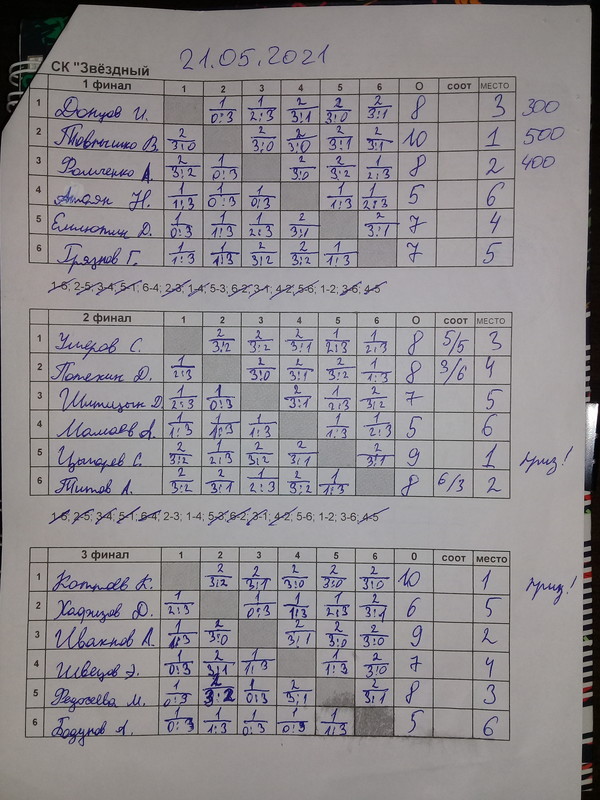 21.05.2021
СК "Звёздный
1 финал 1 2 3 4 5 6 О соот МЕСТО
1 Донцов И. 1 0:3 1 2:3 2 3:1 2 3:0 2 3:1 8 3 300
2 В. 2 3:0 2 3:0 2 3:0 2 3:1 2 3:1 10 1 500
3 Фомиченко А. 2 3:2 1 0:3 2 3:0 2 3:2 1 2:3 8 2 400
4 Атоян Н. 1 1:3 1 0:3 1 0:3 1 1:3 1 2:3 5 6
5 Емлютин Д. 1 0:3 1 1:3 1 2:3 2 3:1 2 3:1 7 4
6 Грязнов Г. 1 1:3 1 1:3 2 3:2 2 3:2 1 1:3 7 5
1-6; 2-5; 3-4; 5-1; 6-4; 2-3; 1-4; 5-3; 6-2; 3-1; 4-2; 5-6; 1-2; 3-6; 4-5
2 финал 1 2 3 4 5 6 О соот МЕСТО
1 Умеров С. 2 3:2 2 3:2 2 3:1 1 2:3 1 2:3 8 5/5 3
2 Потехин Д. 1 2:3 2 3:0 2 3:1 2 3:2 1 1:3 8 3/6 4
3 Шипицын Д. 1 2:3 1 0:3 2 3:1 1 2:3 2 3:2 7 5
4 Мамаев А. 1 1:3 1 1:3 1 1:3 1 1:3 1 2:3 5 6
5 Цыгарев С. 2 3:2 1 2:3 2 3:2 2 3:1 2 3:1 9 1 приз!
6 Титов А. 2 3:2 2 3:1 1 2:3 2 3:2 1 1:3 8 6/3 2
1-6; 2-5; 3-4; 5-1; 6-4; 2-3; 1-4; 5-3; 6-2; 3-1; 4-2; 5-6; 1-2; 3-6; 4-5
3 финал 1 2 3 4 5 6 0 соот место
1 К. 2 3:2 2 3:1 2 3:0 2 3:0 2 3:0 10 1 приз!
2 Хафизов Д. 1 2:3 1 0:3 1 1:3 1 2:3 2 3:1 6 5
3 Ивахнов А. 1 1:3 2 3:0 2 3:1 2 3:0 2 3:0 9 2
4 Швецов Э. 1 0:3 2 3:1 1 1:3 1 1:3 2 3:0 7 4
5 Федосеева М. 1 0:3 2 3:2 1 0:3 2 3:1 2 3:1 8 3
6 Бодунов А. 1 0:3 1 1:3 1 0:3 1 0:3 1 1:3 5 6